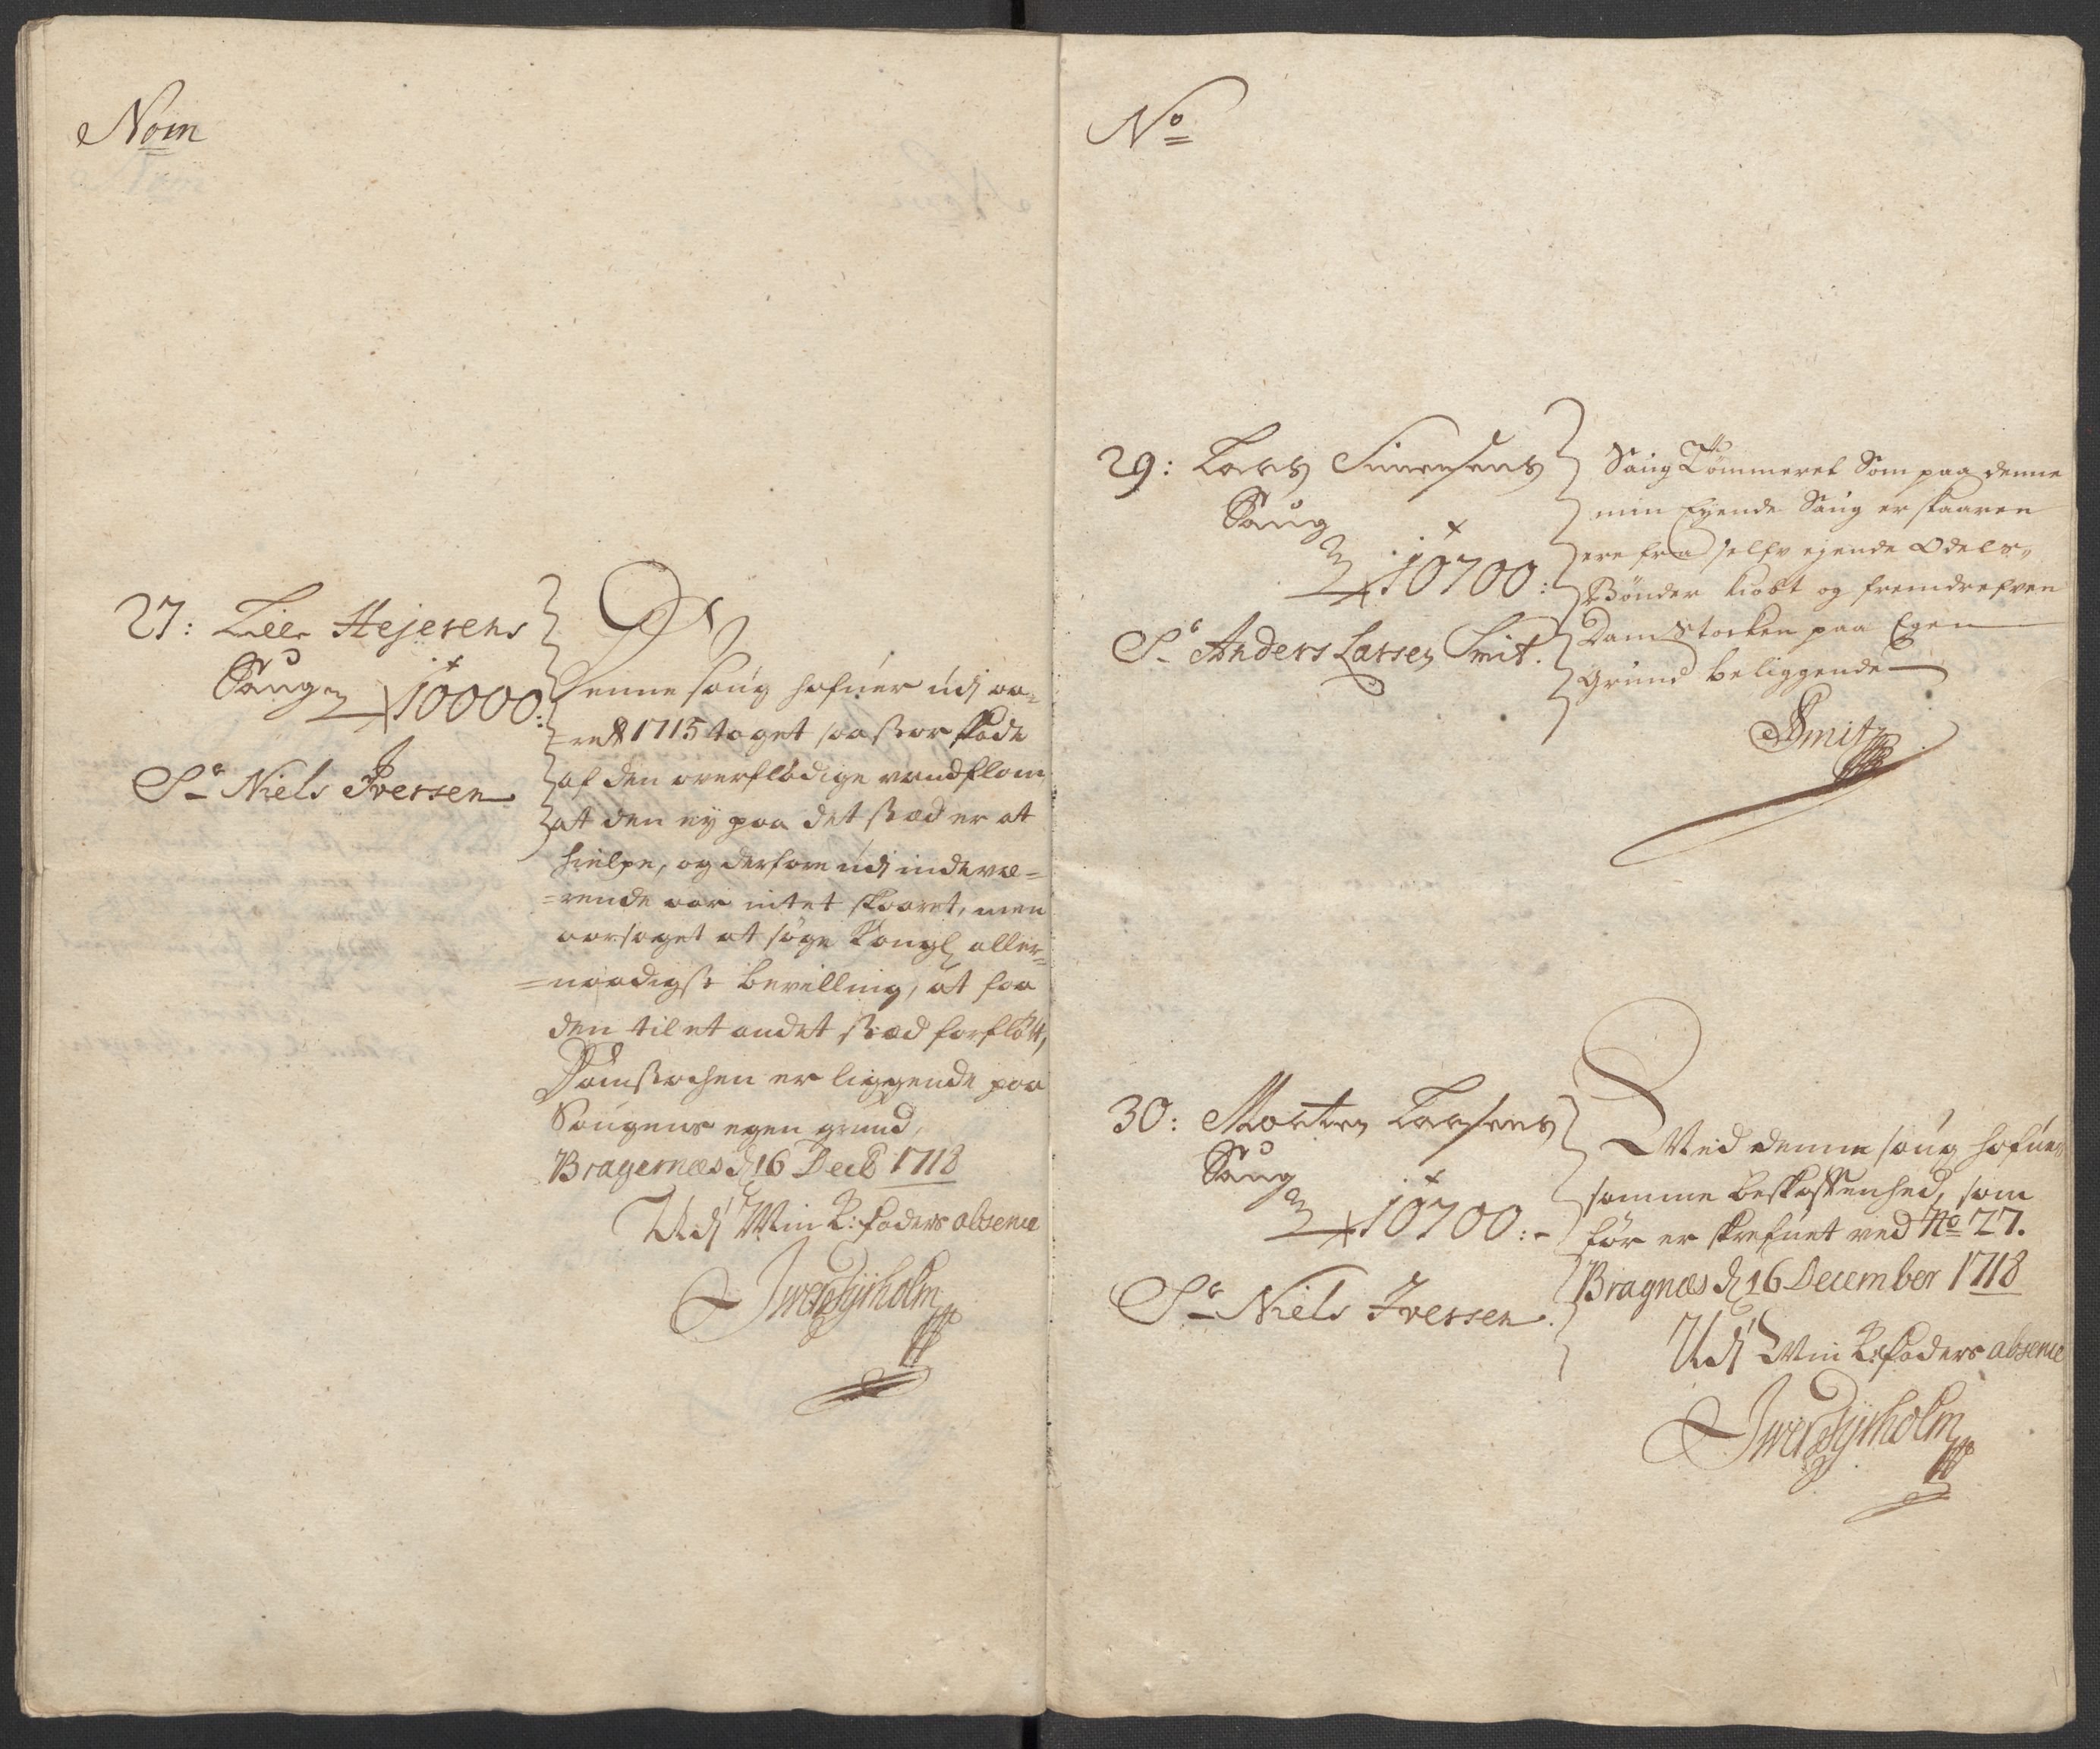 Nom
27: Lille Hejesens
Saug 10000:
Sr Niels Iversen
Denne saug hafuer udj aa-
-ret 1715 taget saa stor skade
af den overflødige vandflom
at den ej paa det stæd er at
hielpe, og derfore udj indevæ-
-rende aar intet skaaret, men
aarsaget at søge Kongl aller-
-naadigst bevilling, at faa
den til et andet stæd forfløtt,
Damstochen er liggende paa
Saugens egen grund,
Bragernæs d 16 Decb 1718
Udj Min K: Faders absence
Iwer Dyrholm
No
29: Lars Simensens
Saug
10700:
Sr Anders Larsen Smit.
Saug Tømmeret Som paa denne
min Eyende Saug er skaaren
ere fra selfv ejende Odels-
Bønder kiøbt og fremdrefven
Dam Stocken paa Egen
Grund beliggende
Smit
30: Morten Larsens
Saug
10700:-
Sr Niels Iversen.
Ved denne saug hafuer
samme beskaffenhed, som
før er skrefuet ved No 27.
Bragnæs d 16 December 1718
Udj Min K: Faders absence
Iwer Dyrholm